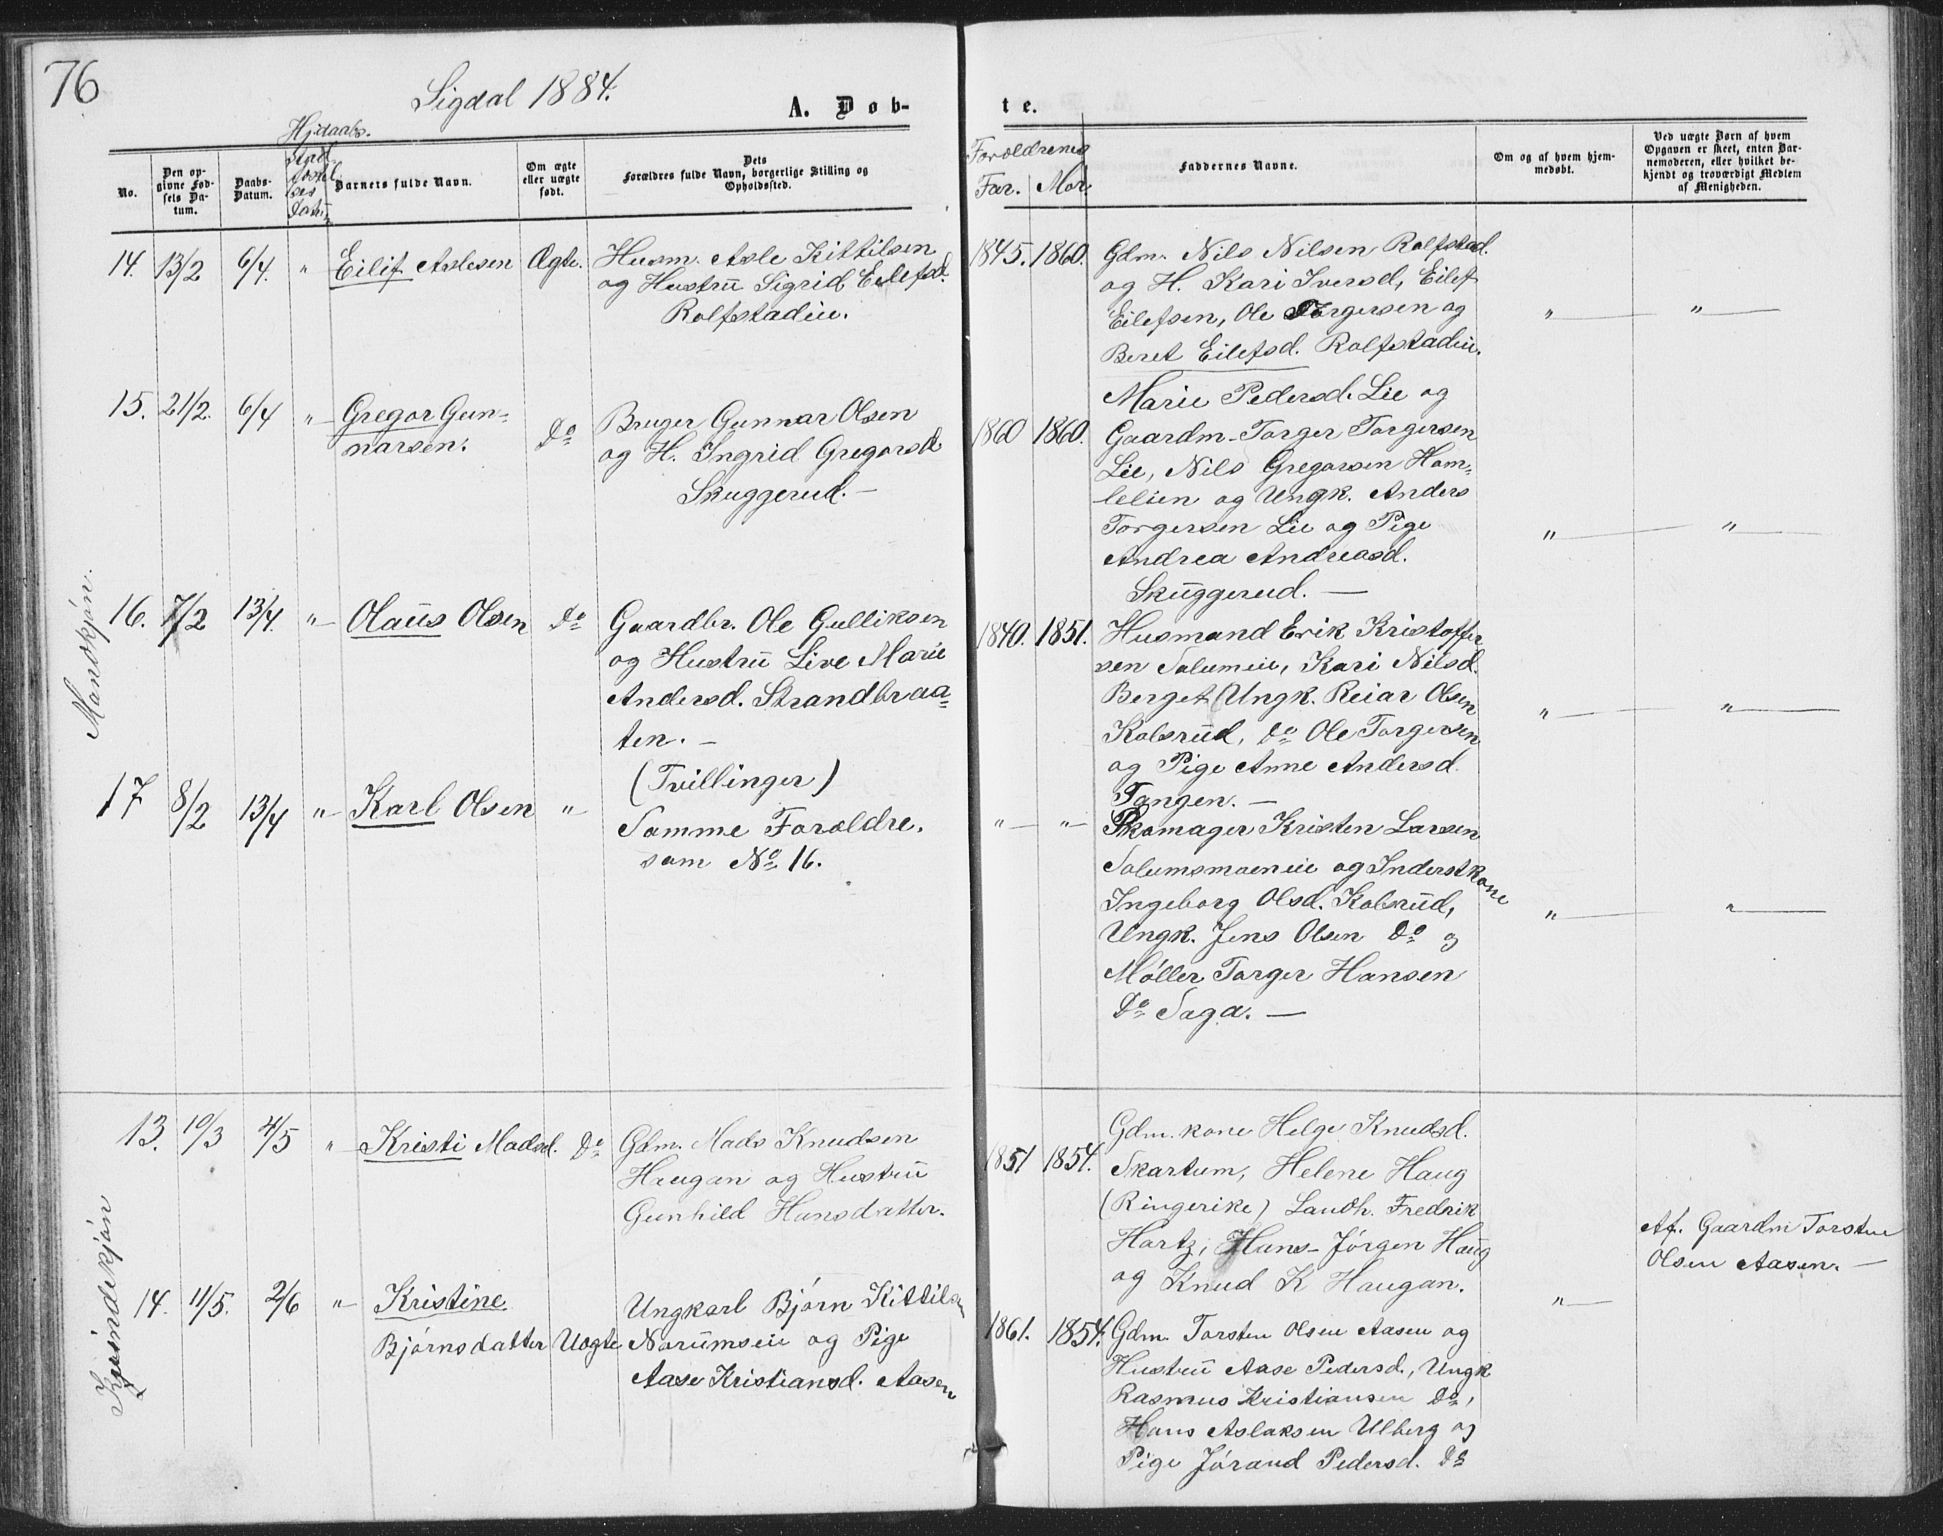 76
Sigdal 1884.
A. Dob-
te.
No.
Den op-
givne Fød-
sels Da-
tum.
Daabs-
Datum.
Hjdaabs.
Barnets fulde Navn.
Om ægte
eller uægte
født.
Dets
Forældres fulde Navn, borgerlige Stilling og
Opholdssted.
Forældrenes
Far. Mor.
Faddernes Navne.
Om og af hvem hjem-
medøbt.
Ved uægte Børn af hvem
Opgaven er skeet, enten Bar-
nemoderen, eller hvilket be-
kjendt og troværdigt Medlem
af Menigheden.
Mandkjøn.
14. 13/2 6/4. " Eilif Aslesen Ægte. Husm. Asle Kittilsen
og Hustrü Sigrid Eilefsd.
Rolfstadeie.
1845. 1860. Gdm. Nils Nilsen Rolfstad.
og H. Kari Iversd, Eilef
Eilefsen, Ole Torgersen og
Beret Eilefsd. Rolfstadeie.
" "
15. 21/2. 6/4 " Gregor Gun-
narsen. Do Bruger Gunnar Olsen
og H. Ingrid Gregorsd
Skuggerud. —
1860 1860. Marie Pedersd. Lie og
Gaardm. Torger Torgersen
Lie, Nils Gregorsen Ham-
lelien og Ungk. Anders
Torgersen Lie og Pige
Andrea Andreasd.
Skuggerud. —
" "
16. 7/2 13/4. " Olaüs Olsen Do Gaardbr. Ole Gulliksen
og Hustrü Live Marie
Andersd. Strandbraa-
ten. —
(Tvillinger)
1840. 1851. Husmand Erik Kristoffer
sen Solumeie, Kari Nilsd.
Berget, Ungk. Reiar Olsen
Kolsrüd, Do Ole Torgersen
og Pige Anne Andersd.
Tangen. —
" "
17 8/2 13/4 " Karl Olsen " Samme Forældre.
som No 16.
" " Skomager Kristen Larsen
Solumsmoeneie og Inderstkone
Ingeborg Olsd. Kolsrüd,
Ungk. Jens Olsen Do og
Møller Torger Hansen
Do Saga. —
" "
Kvindekjøn
13. 10/3 4/5 " Kristi Madsd. Do Gdm. Mads Knudsen
Haugan og Hustrü
Gunhild Hansdatter.
1851 1854. Gdm. kone Helge Knudsd.
Skartum, Helene Haug
(Ringerike) Landh. Fredrik
Hartz, Hans Jørgen Haug
og Knud K Haugan.
14. 11/5. 2/6 " Kristine
Bjørnsdatter Uægte Ungkarl Bjørn Kittilsen
Norümseie og Pige
Aase Kristiansd. Aasen
1861. 1854. Gdm. Torsten Olsen Aasen og
Hustrü Aase Pedersd., Ungk
Rasmus Kristiansen Do,
Hans Aslaksen Ulberg og
Pige Jørand Pedersd. Do
" Af. Gaardm Torsten
Olsen Aasen. —